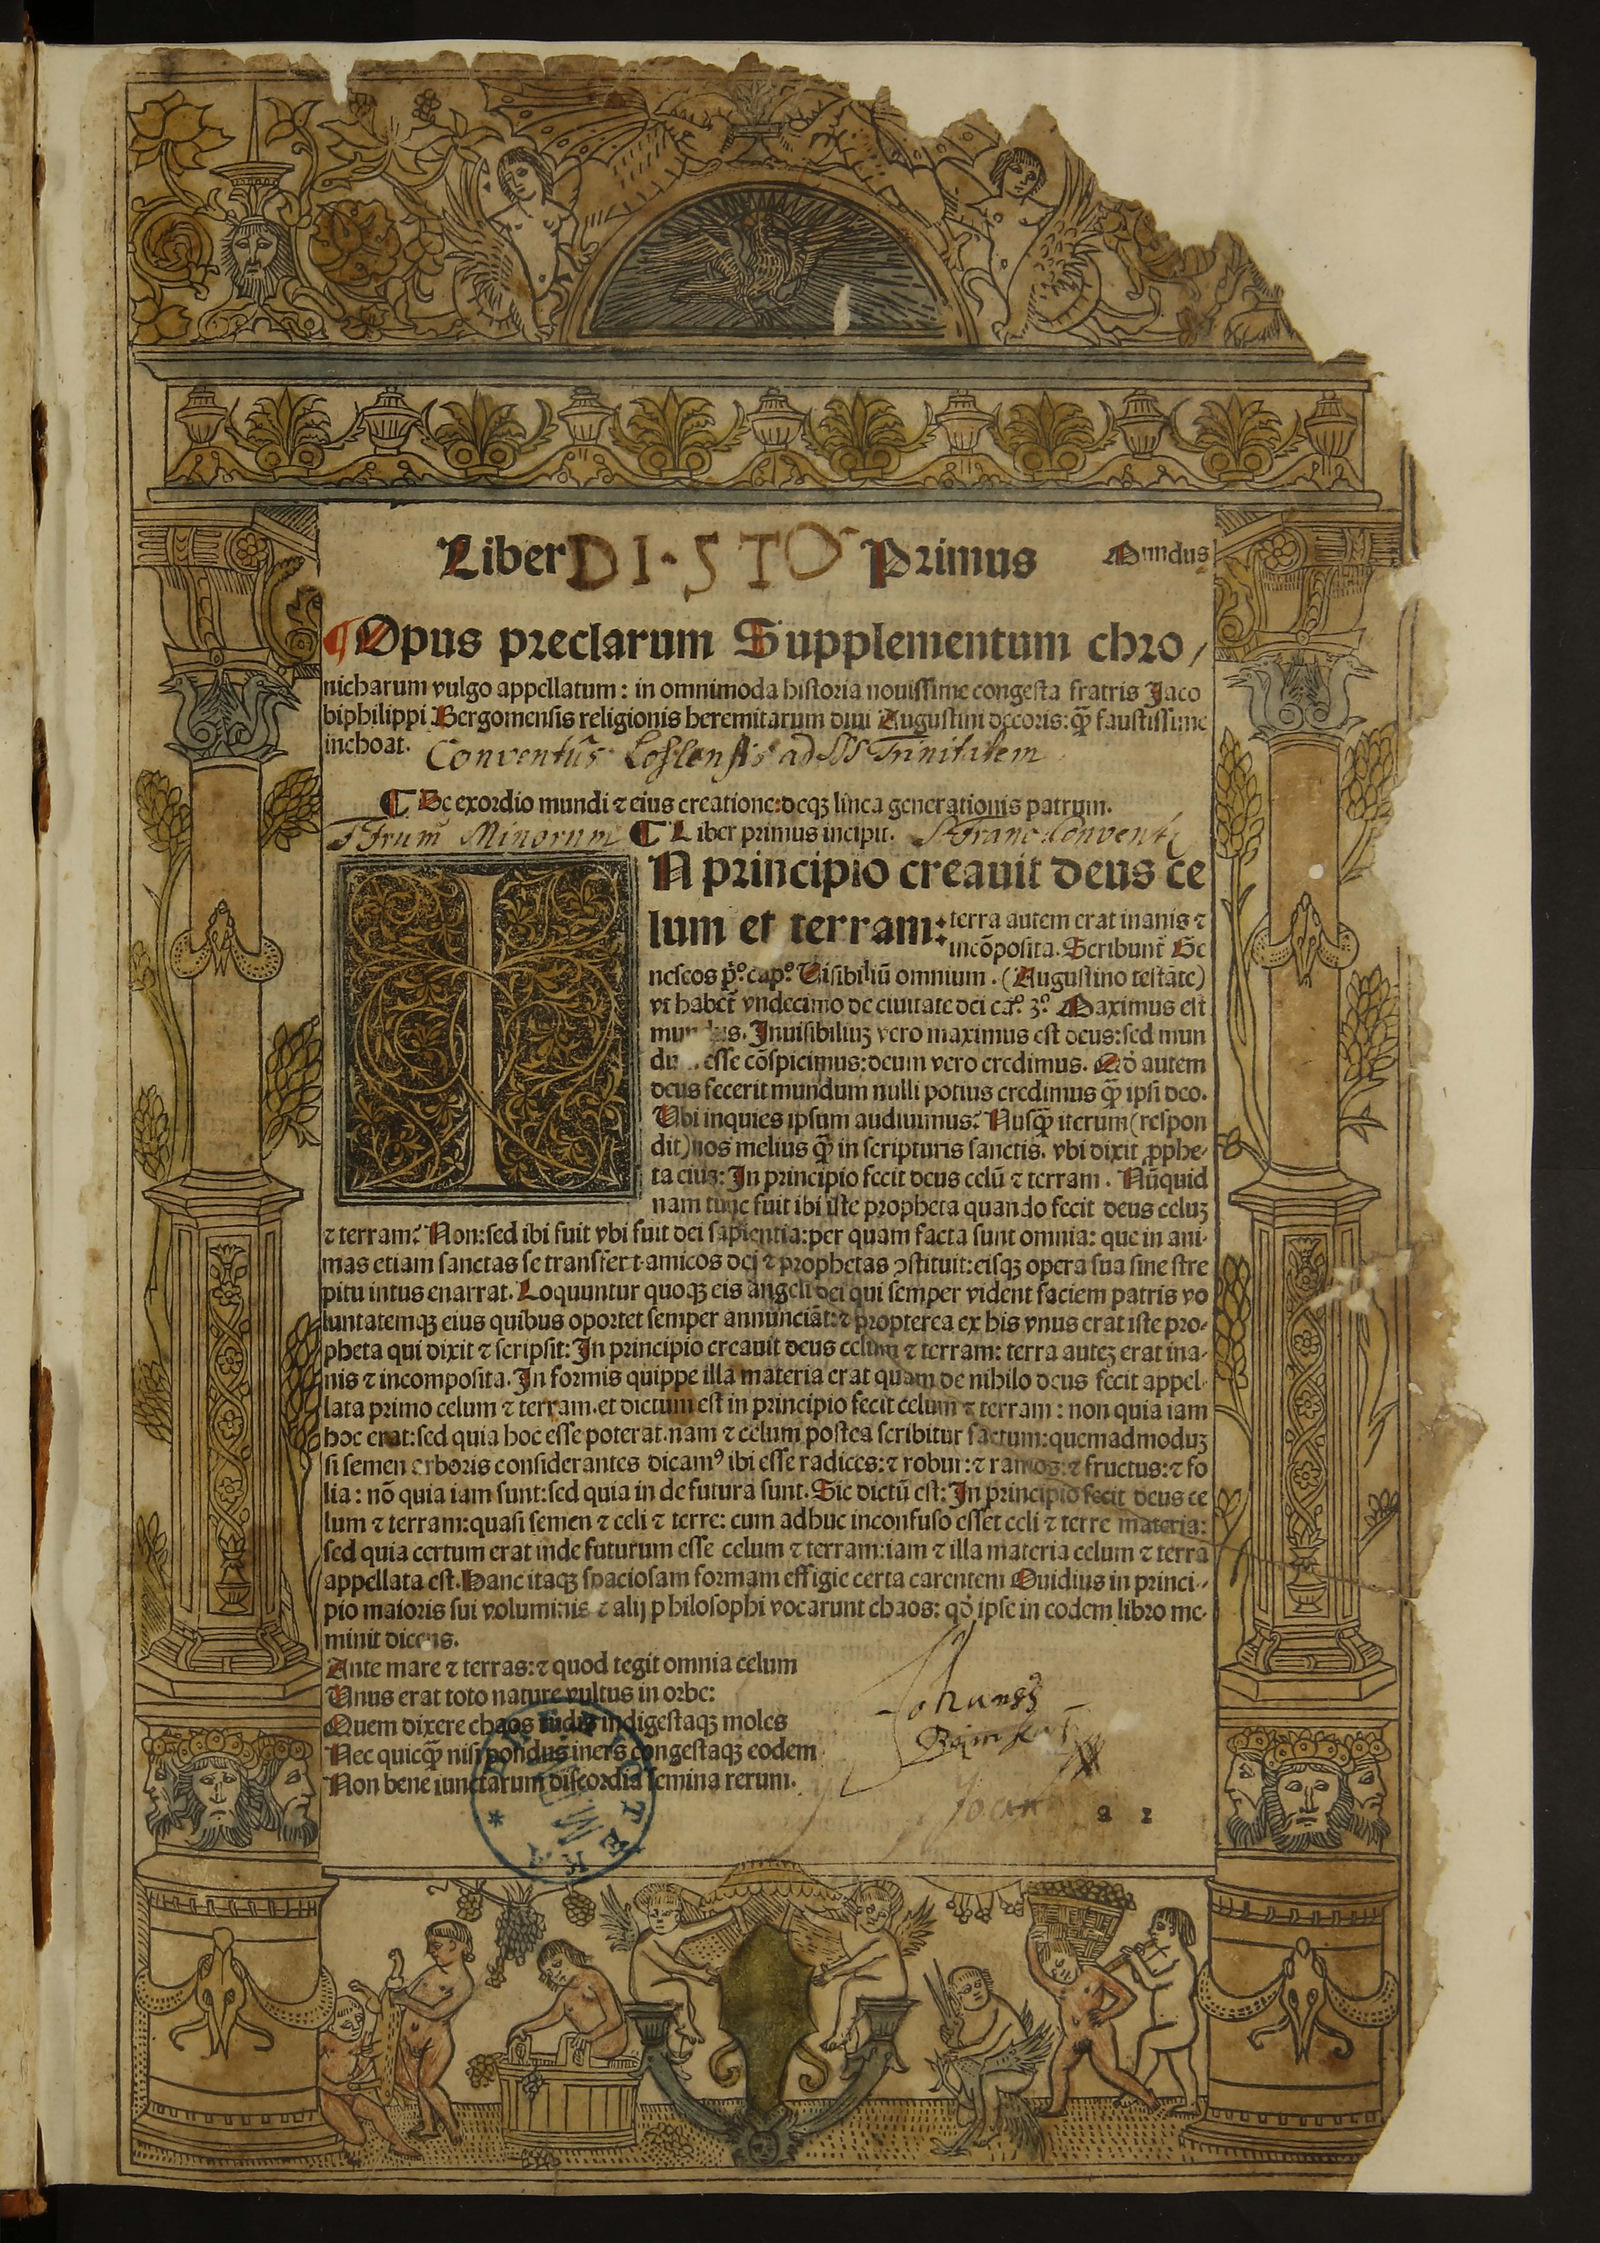 Liber DI·STO Primus Mundus
¶ Opus preclarum Supplementum chro/
nicharum vulgo appellatum: in omnimoda historia nouissime congesta fratris Jaco
biphilippi Bergomensis religionis heremitarum diui Augustini decoris: qꝫ̃ faustissime
inchoat. Conventûs Loslensis ad SS Trinitatem
¶ De exordio mundi ⁊ eius creatione: deqꝫ linea generationis patrum.
Frum̃ Minorum ¶ Liber primus incipit. S. Franc. Conventˢ
IN principio creauit deus ce
lum et terram: terra autem erat inanis ⁊
incõposita. Scribunt̃ Ge
neseos p̃º. capº. Uisibiliũ omnium. (Augustino testãte)
vt habet̃ vndecimo de ciuitate dei caº. 3º. Maximus est
mundus. Inuisibiliuꝫ vero maximus est deus: sed mun
du esse cõspicimus: deum vero credimus. Qd̾ autem
deus fecerit mundum nulli potius credimus qꝫ̃ ipsi deo.
Ubi inquies ipsum audiuimus? Nusqꝫ̃ iterum (respon
dit) nos melius qꝫ̃ in scripturis sanctis. vbi dixit ꝓphe-
ta eiuꝫ: In principio fecit deus celũ ⁊ terram. Nũquid
nam tunc fuit ibi iste propheta quando fecit deus celuꝫ
⁊ terram? Non: sed ibi fuit vbi fuit dei sapientia: per quam facta sunt omnia: que in ani-
mas etiam sanctas se transfert. amicos dei ⁊ prophetas ↄstituit: eisqꝫ opera sua sine stre
pitu intus enarrat. Loquuntur quoqꝫ eis angeli dei qui semper vident faciem patris vo
luntatemqꝫ eius quibus oportet semper annunciãt: ⁊ propterea ex his vnus erat iste pro-
pheta qui dixit ⁊ scripsit: In principio creauit deus celum ⁊ terram: terra auteꝫ erat ina-
nis ⁊ incomposita. In formis quippe illa materia erat quam de nihilo deus fecit appel-
lata primo celum ⁊ terram. et dictum est in principio fecit celum ⁊ terram: non quia iam
hoc erat: sed quia hoc esse poterat. nam ⁊ celum postea scribitur factum: quemadmoduꝫ
si semen arboris considerantes dicamꝰ ibi esse radices: ⁊ robur: ⁊ ramos: ⁊ fructus: ⁊ fo
lia: nõ quia iam sunt: sed quia inde futura sunt. Sic dictũ est: In principio fecit deus ce
lum ⁊ terram: quasi semen ⁊ celi ⁊ terre: cum adhuc inconfuso esset celi ⁊ terre materia:
sed quia certum erat inde futurum esse celum ⁊ terram: iam ⁊ illa materia celum ⁊ terra
appellata est. Hanc itaqꝫ spaciosam formam effigie certa carentem Ouidius in princi-
pio maioris sui voluminis ⁊ alij philosophi vocarunt chaos: qd̾ ipse in eodem libro me-
minit dicens.
Ante mare ⁊ terras: ⁊ quod tegit omnia celum
Unus erat toto nature vultus in orbe:
Quem dixere chaos rudis indigestaqꝫ moles
Nec quicqꝫ̃ nisi pondus iners congestaqꝫ eodem
Non bene iunctarum discordia semina rerum.
a 2